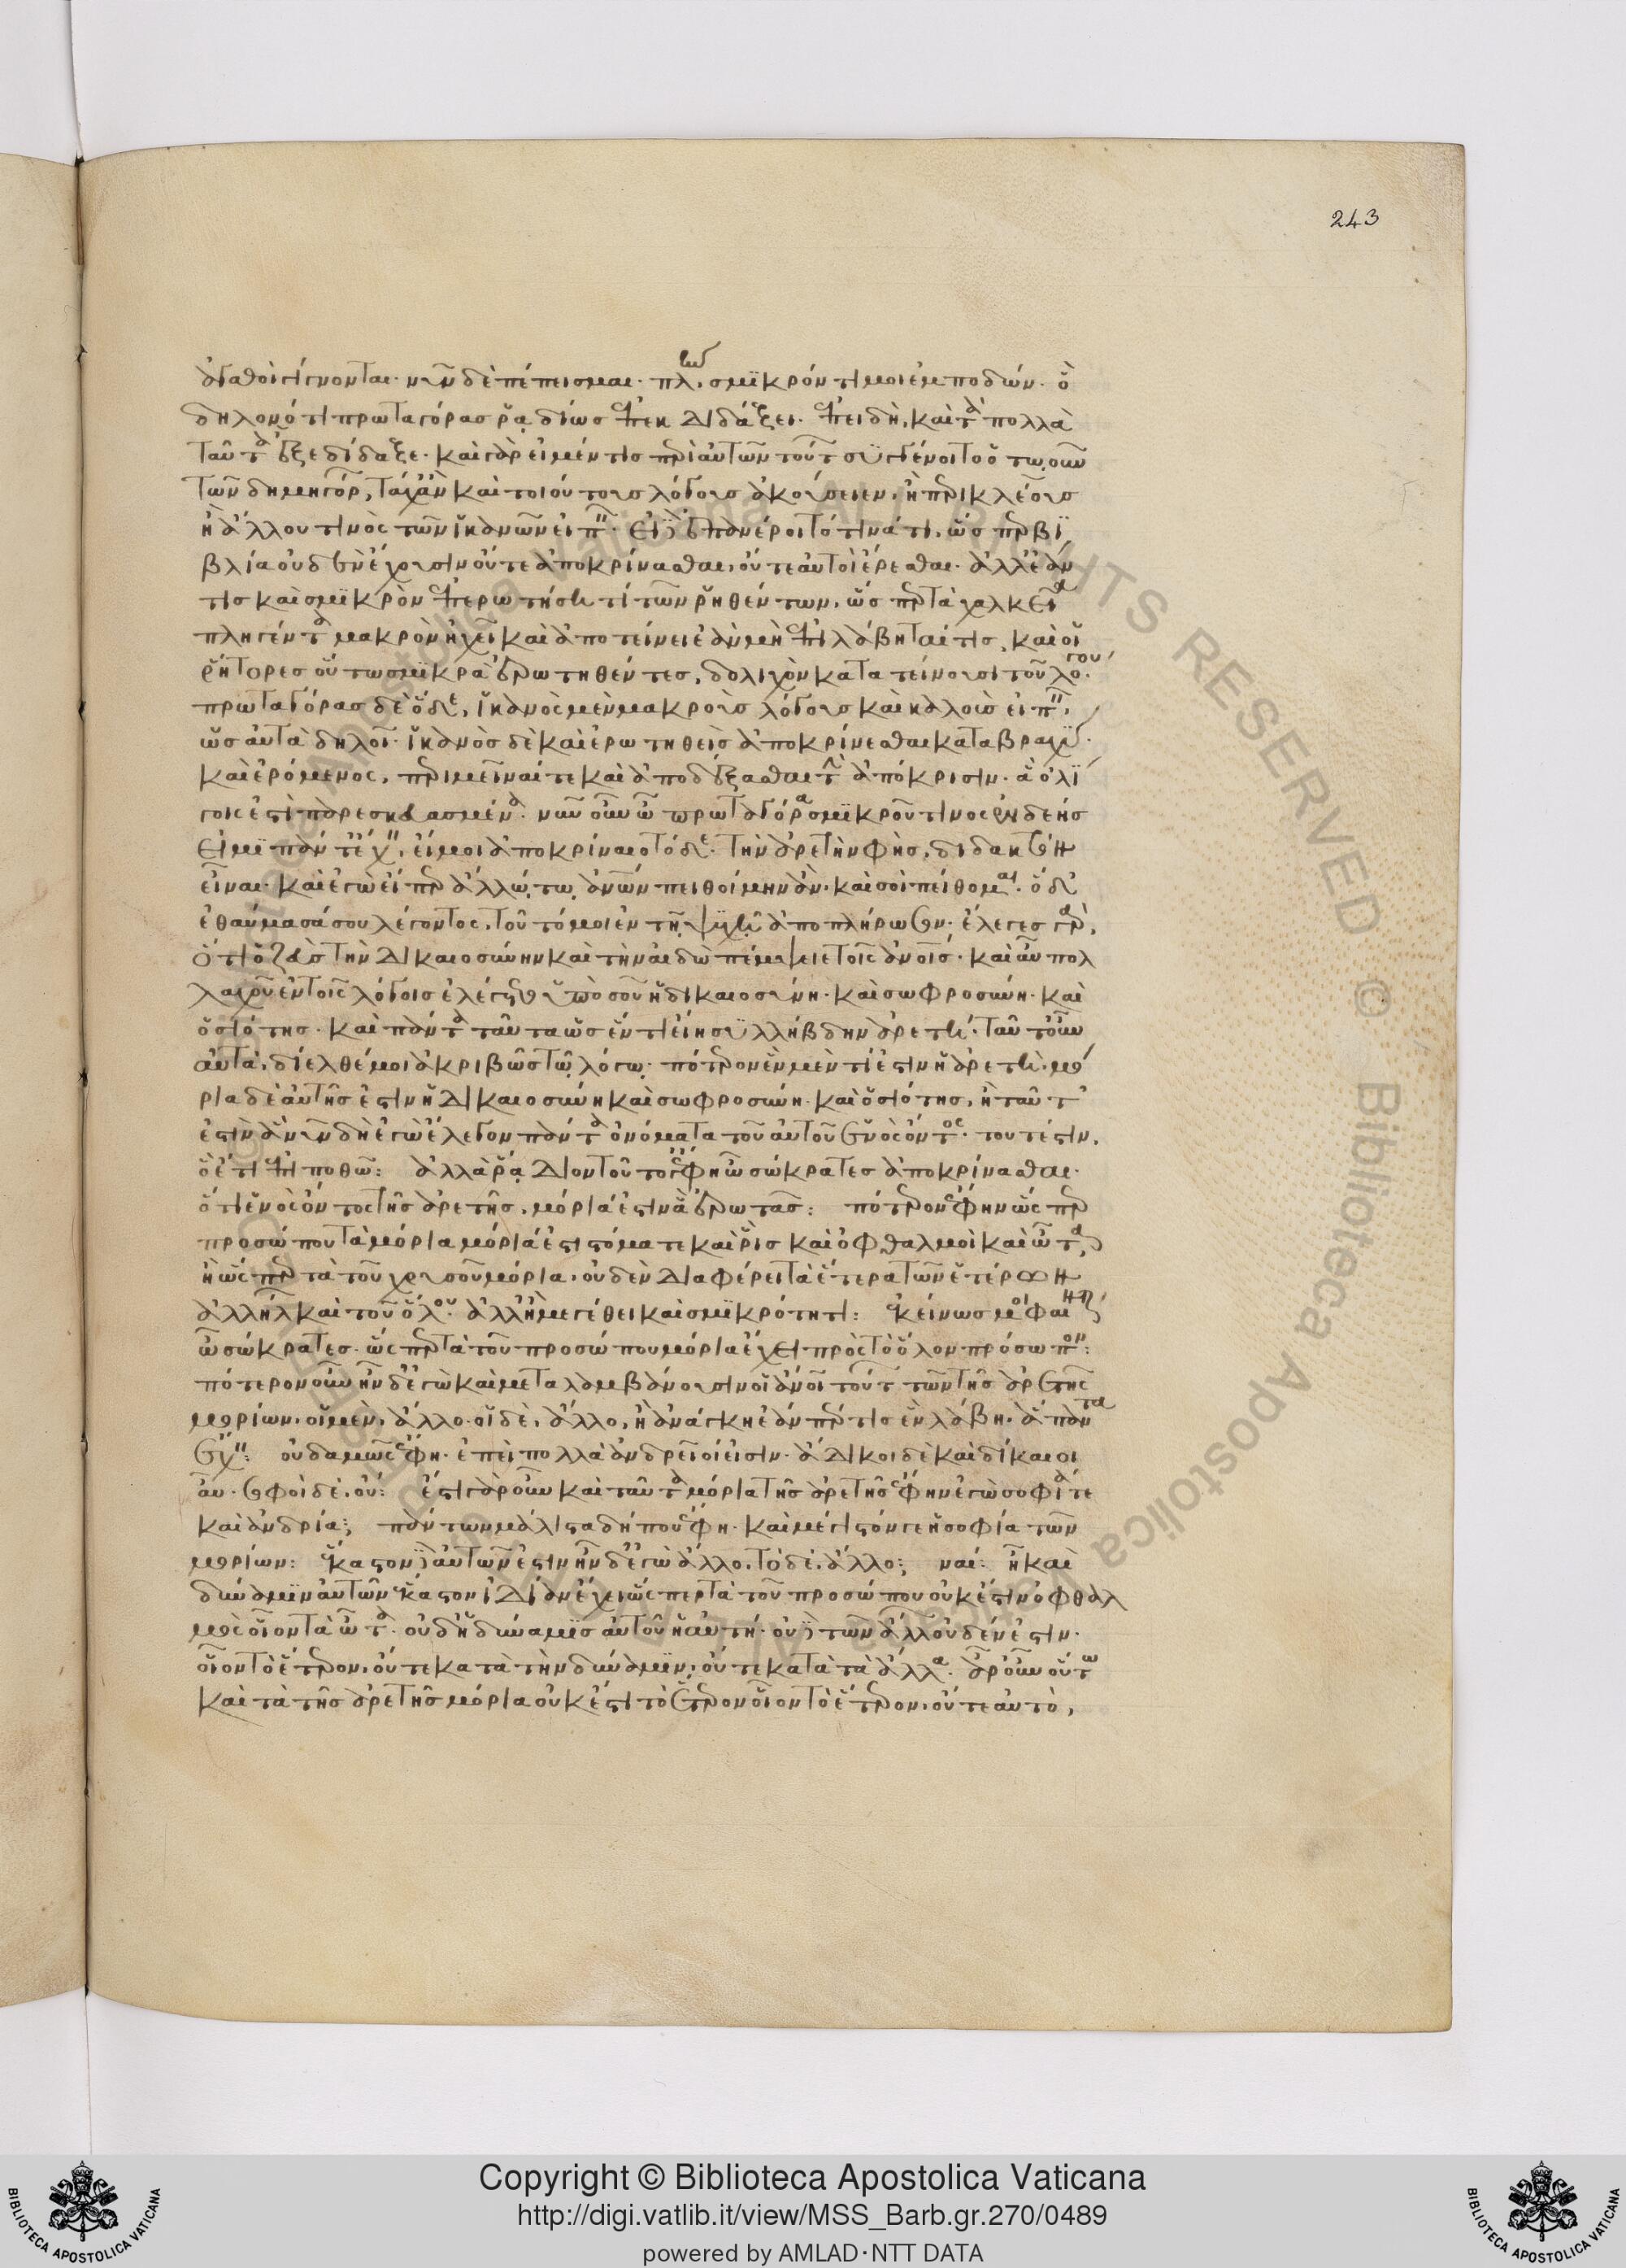 243
ἀγαθοὶ γίγνονται· νῦν δὲ πέπεισμαι· πλὴν σμικρόν τί μοι ἐμποδών· ὃ
δῆλον ὅτι πρωταγόρας ῥᾳδίως ἐπεκδιδάξει· ἐπειδὴ, καὶ τὰ πολλὰ
ταῦτα ἐξεδίδαξε· καὶ γὰρ εἰ μέν τις περὶ αὐτῶν τούτων συγγένοιτο ὁτῳοῦν
τῶν δημηγόρων, τάχ' ἂν καὶ τοιούτους λόγους ἀκούσειεν, ἢ περικλέους
ἢ ἄλλου τινὸς τῶν ἱκανῶν εἰπεῖν· εἰ δὲ ἐπανέροιτό τινά τι, ὥσπερ βι
βλία οὐδὲν ἔχουσιν οὔτε ἀποκρίνασθαι, οὔτε αὐτοὶ ἐρέσθαι· ἀλλ' ἐάν
τις καὶ σμικρὸν ἐπερωτήσῃ τι τῶν ῥηθέντων, ὥσπερ τὰ χαλκεῖα
πληγέντα μακρὸν ἠχεῖ καὶ ἀποτείνει ἐὰν μὴ ἐπιλάβηταί τις, καὶ οἱ
ῥήτορες οὕτω σμικρὰ ἐρωτηθέντες, δολιχὸν κατατείνουσι τοῦ λόγου·
πρωταγόρας δὲ ὅδε, ἱκανὸς μὲν μακροὺς λόγους καὶ καλοὺς εἰπεῖν,
ὡς αὐτὰ δηλοῖ· ἱκανὸς δὲ καὶ ἐρωτηθεὶς ἀποκρίνεσθαι κατὰ βραχὺ·
καὶ ἐρόμενος, περιμεῖναί τε καὶ ἀποδέξασθαι τὴν ἀπόκρισιν· ἃ ὀλί
γοις ἐστὶ παρεσκευασμένα· νῦν οὖν ὦ πρωταγόρα σμικροῦ τινος ἐνδεής
εἰμι πάντ' ἔχειν, εἴ μοι ἀποκρίναιο τόδε· τὴν ἀρετὴν φῂς, διδακτὴν
εἶναι· καὶ ἐγὼ εἴπερ ἄλλῳ τῳ ἀνθρώπων πειθοίμην ἂν· καὶ σοὶ πείθομαι· ὃ δ'
ἐθαύμασά σου λέγοντος, τοῦτό μοι ἐν τῇ ψυχῇ ἀποπλήρωσον· ἔλεγες γὰρ,
ὅτι ὁ ζεὺς τὴν δικαιοσύνην καὶ τὴν αἰδῶ πέμψειε τοῖς ἀνθρώποις· καὶ αὖ πολ
λαχοῦ ἐν τοῖς λόγοις ἐλέγετο ὑπὸ σοῦ ἡ δικαιοσύνη· καὶ σωφροσύνη· καὶ
ὁσιότης· καὶ πάντα ταῦτα ὡς ἕν τι εἴη συλλήβδην ἀρετή· ταῦτ' οὖν
αὐτὰ, δίελθέ μοι ἀκριβῶς τῷ λόγῳ· πότερον ἓν μέν τί ἐστιν ἡ ἀρετὴ· μό
ρια δὲ αὐτῆς ἐστιν ἡ δικαιοσύνη καὶ σωφροσύνη· καὶ ὁσιότης, ἢ ταῦτ'
ἐστὶν ἃ νῦν δὴ ἐγὼ ἔλεγον πάντα ὀνόματα τοῦ αὐτοῦ ἑνὸς ὄντος· τοῦτ' ἐστὶν,
ὃ ἔτι ἐπιποθῶ: ἀλλὰ ῥᾴδιον τοῦτό γ' ἔφη ὦ σώκρατες ἀποκρίνασθαι·
ὅτι ἑνὸς ὄντος τῆς ἀρετῆς, μόριά ἐστιν ἃ ἐρωτᾷς: πότερον ἔφην ὥσπερ
προσώπου τὰ μόρια μόριά ἐστι στόμα τε καὶ ῥὶς καὶ ὀφθαλμοὶ καὶ ὦτα,
ἢ ὥσπερ τὰ τοῦ χρυσοῦ μόρια, οὐδὲν διαφέρει τὰ ἕτερα τῶν ἑτέρων
ἀλλήλων καὶ τοῦ ὅλου· ἀλλ' ἢ μεγέθει καὶ σμικρότητι: ἐκείνως μοι φαίνεται
ὦ σώκρατες· ὥσπερ τὰ τοῦ προσώπου μόρια ἔχει πρὸς τὸ ὅλον πρόσωπον:
πότερον οὖν ἦν δ' ἐγὼ καὶ μεταλαμβάνουσιν οἱ ἄνθρωποι τούτων τῶν τῆς ἀρετῆς
μορίων· οἱ μὲν, ἄλλο· οἱ δὲ, ἄλλο, ἢ ἀνάγκη ἐάν περ τις ἓν λάβῃ· ἅπαντα
ἔχειν: οὐδαμῶς ἔφη· ἐπεὶ πολλοὶ ἀνδρεῖοί εἰσιν· ἄδικοι δὲ καὶ δίκαιοι
αὖ· σοφοὶ δὲ, οὔ: ἔστι γὰρ οὖν καὶ ταῦτα μόρια τῆς ἀρετῆς ἔφην ἐγὼ σοφία τε
καὶ ἀνδρία; πάντων μάλιστα δήπου ἔφη· καὶ μέγιστόν γε ἡ σοφία τῶν
μορίων: ἕκαστον δὲ αὐτῶν ἐστιν ἦν δ' ἐγὼ ἄλλο, τὸ δὲ, ἄλλο; ναί: ἦ καὶ
δύναμιν αὐτῶν ἕκαστον ἰδίαν ἔχει ὥσπερ τὰ τοῦ προσώπου οὐκ ἔστιν ὀφθαλ
μὸς οἷον τὰ ὦτα· οὐδ' ἡ δύναμις αὐτοῦ ἡ αὐτή· οὐδὲ τῶν ἄλλων οὐδέν ἐστιν·
οἷον τὸ ἕτερον, οὔτε κατὰ τὴν δύναμιν, οὔτε κατὰ τὰ ἄλλα· ἆρ' οὖν οὕτω
καὶ τὰ τῆς ἀρετῆς μόρια οὐκ ἔστι τὸ ἕτερον οἷον τὸ ἕτερον, οὔτε αὐτὸ,
Copyright © Biblioteca Apostolica Vaticana
http://digi.vatlib.it/view/MSS_Barb.gr.270/0489
powered by AMLAD·NTT DATA